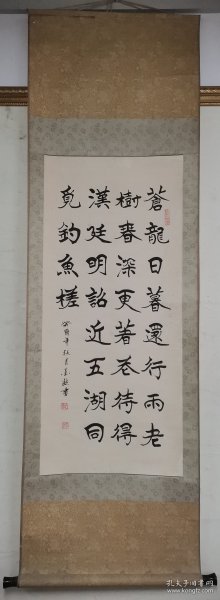 蒼龍日暮還行雨老
樹春深更著花待得
漢廷明詔近五湖同
覓釣魚槎
孔夫子旧书网
www.kongfz.com